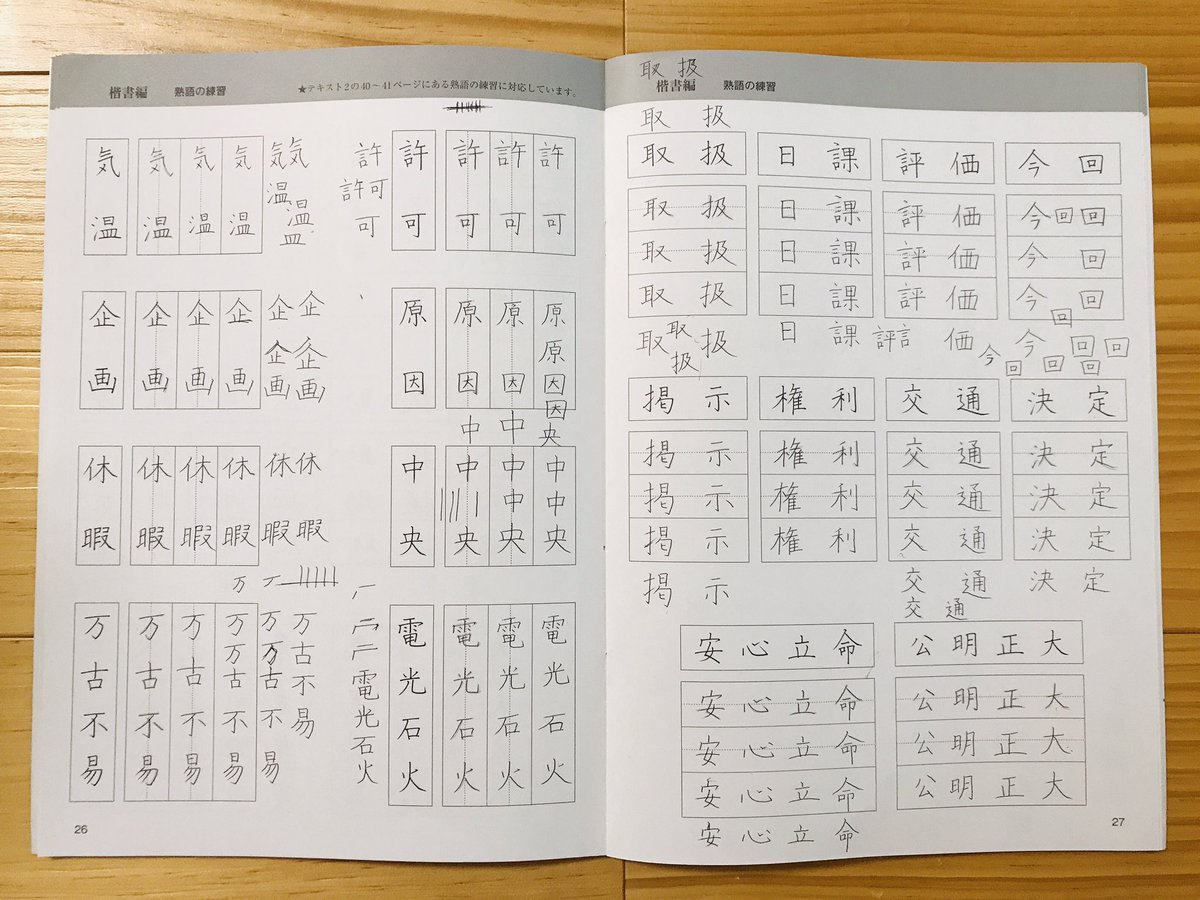 楷書編 熟語の練習 ★テキスト2の40〜41ページにある熟語の練習に対応しています。
気温
気温
気温
気温
気気
温
温
皿
許
許可
可
許可
許可
許可
許可
企画
企画
企画
企画
企企
企企
画画
原因
原因
原因
原原因因
中中央
休暇
休暇
休暇
休暇
休暇
休暇
中央
中央
中中央
中中央
万
万古不易
万古不易
万古不易
万万古不易
万万古不易
万古不易
電光石火
電光石火
電光石火
電光石火
電光石火
26
取扱
楷書編 熟語の練習
取扱
取扱 日課 評価 今回
取扱 日課 評価 今回回
取扱 日課 評価 今回
取扱 日課 評価 今回
回
取取扱 日課 評言価 今回回
扱 今回回回
掲示 権利 交通 決定
掲示 権利 交通 決定
掲示 権利 交通 決定
掲示 権利 交通 決定
掲示 交通 決定
交通
安心立命 公明正大
安心立命 公明正大
安心立命 公明正大
安心立命 公明正大
安心立命
27